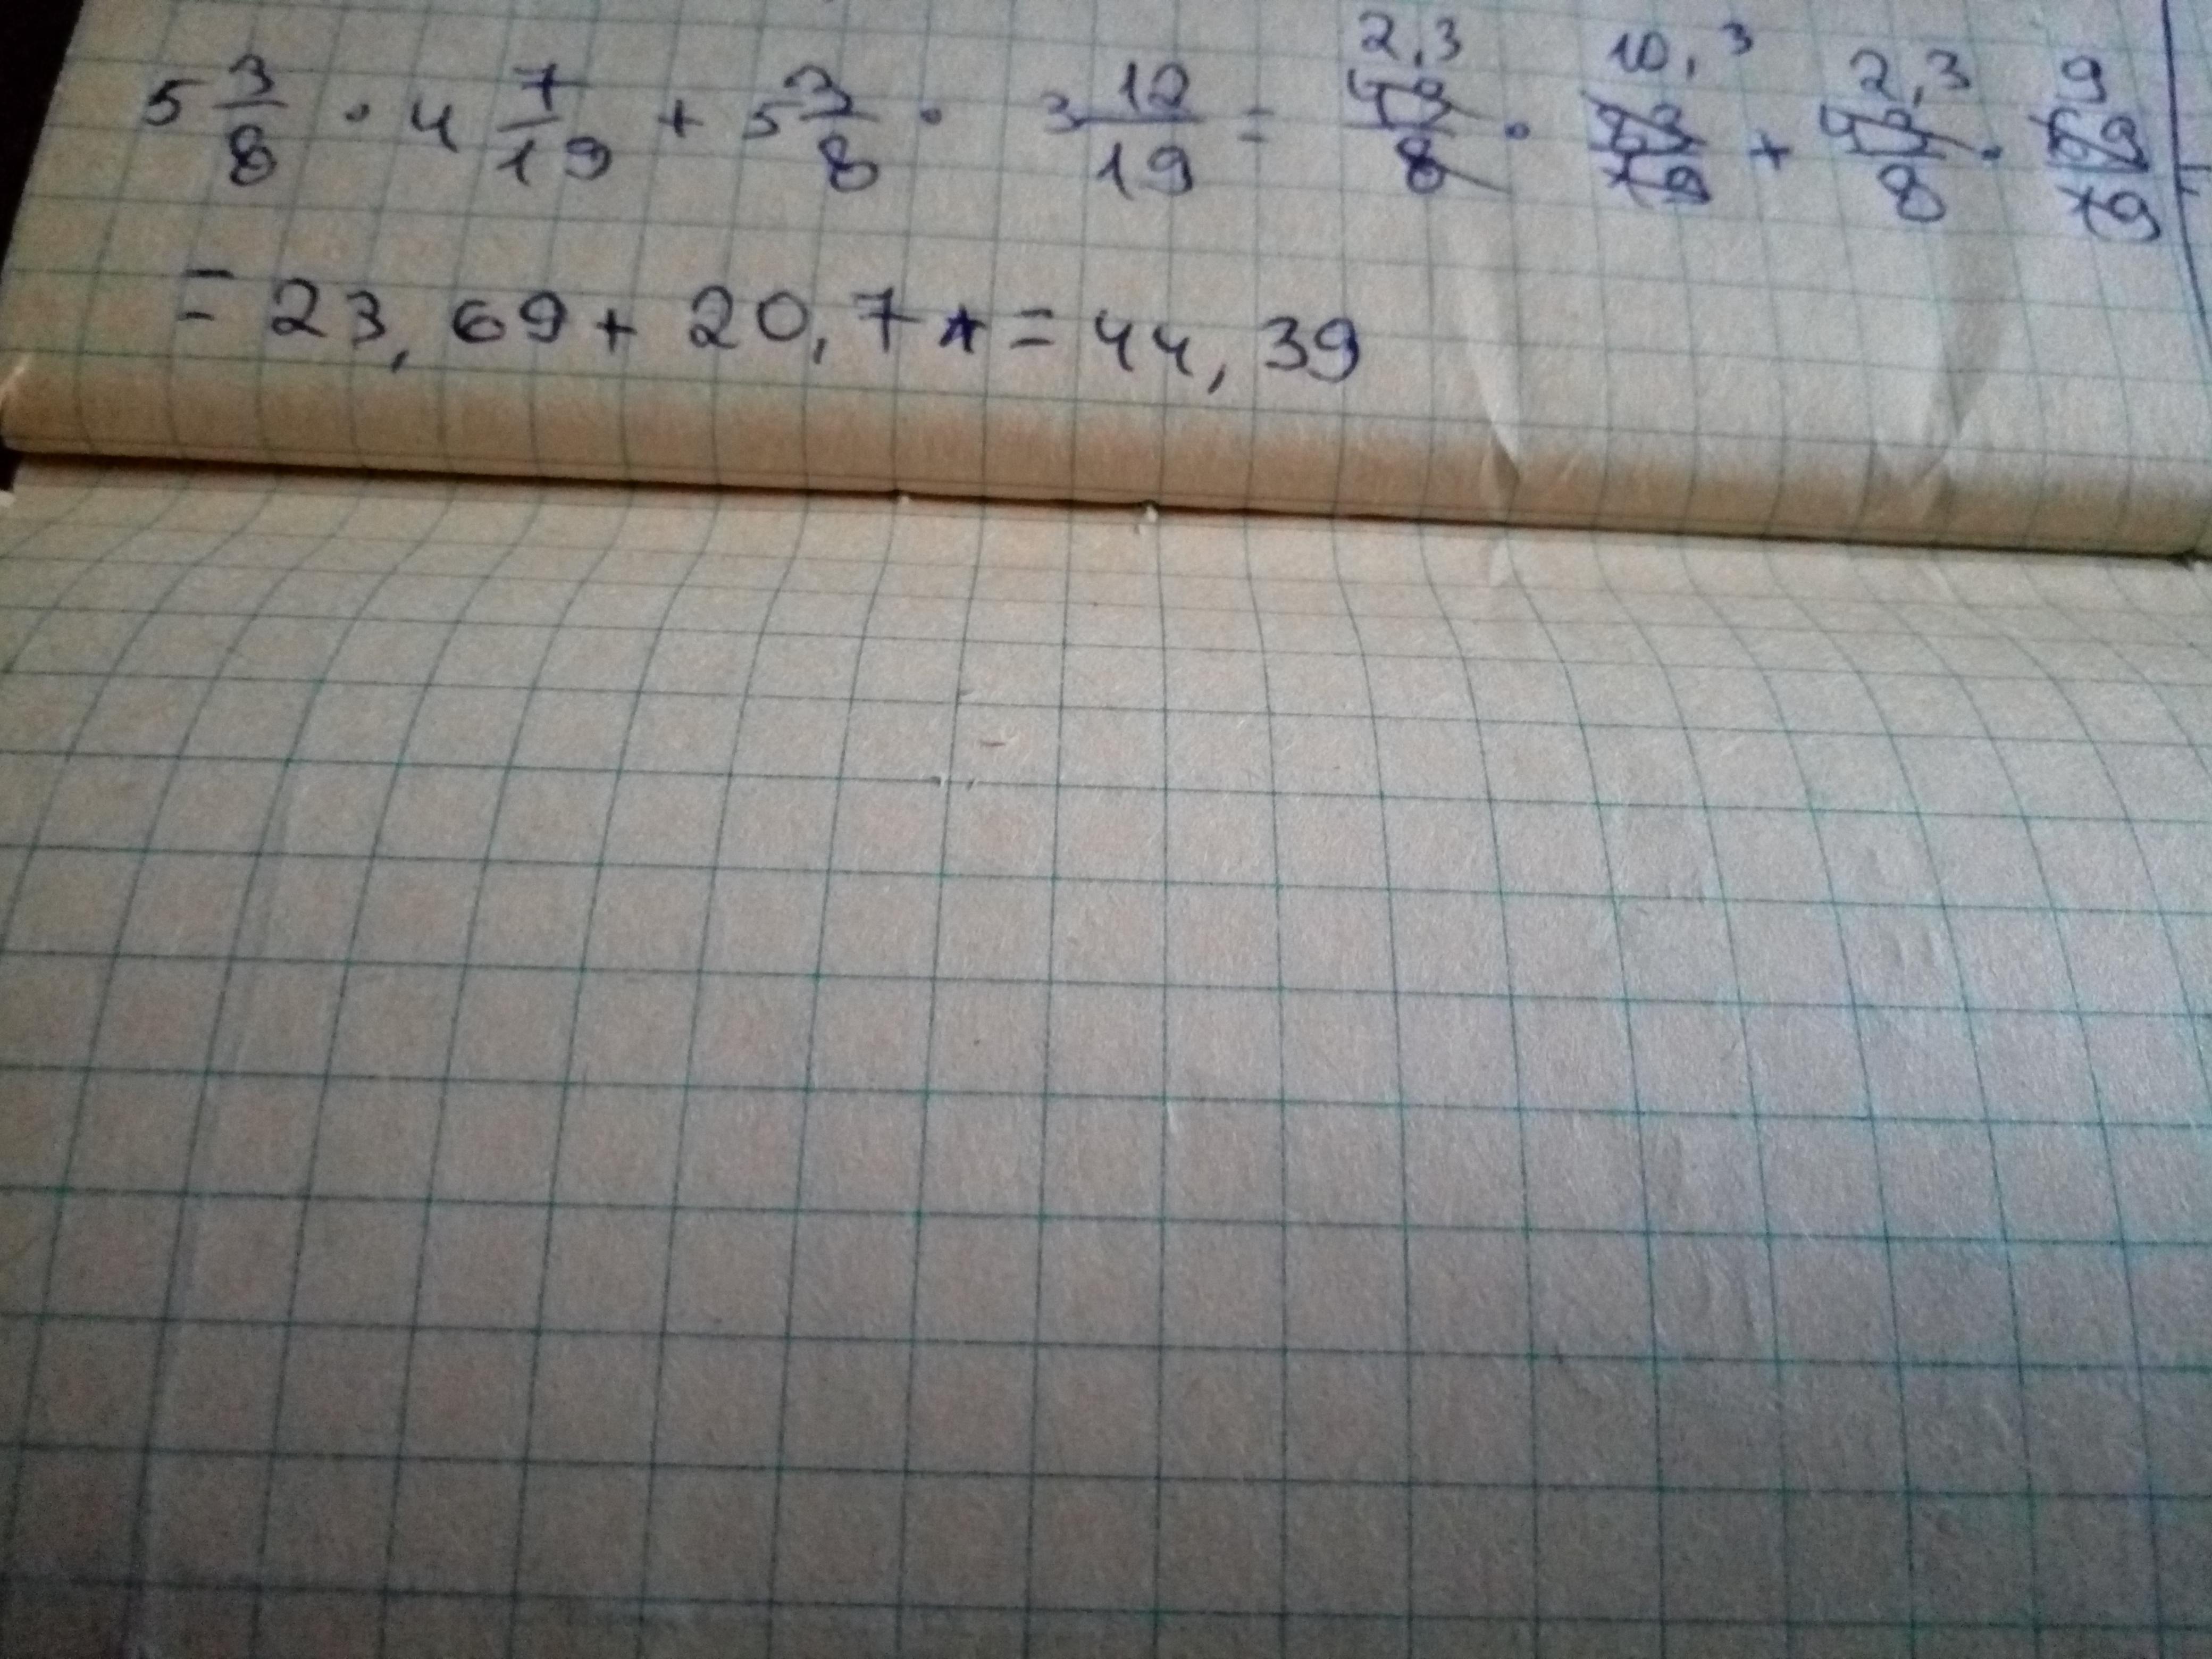 5 3/8 · 4 7/19 + 5 3/8 · 3 12/19 = 2,3 43/8 · 10,3 /19 + 2,3 43/8 · 9 69/19
= 23,69 + 20,7 = 44,39